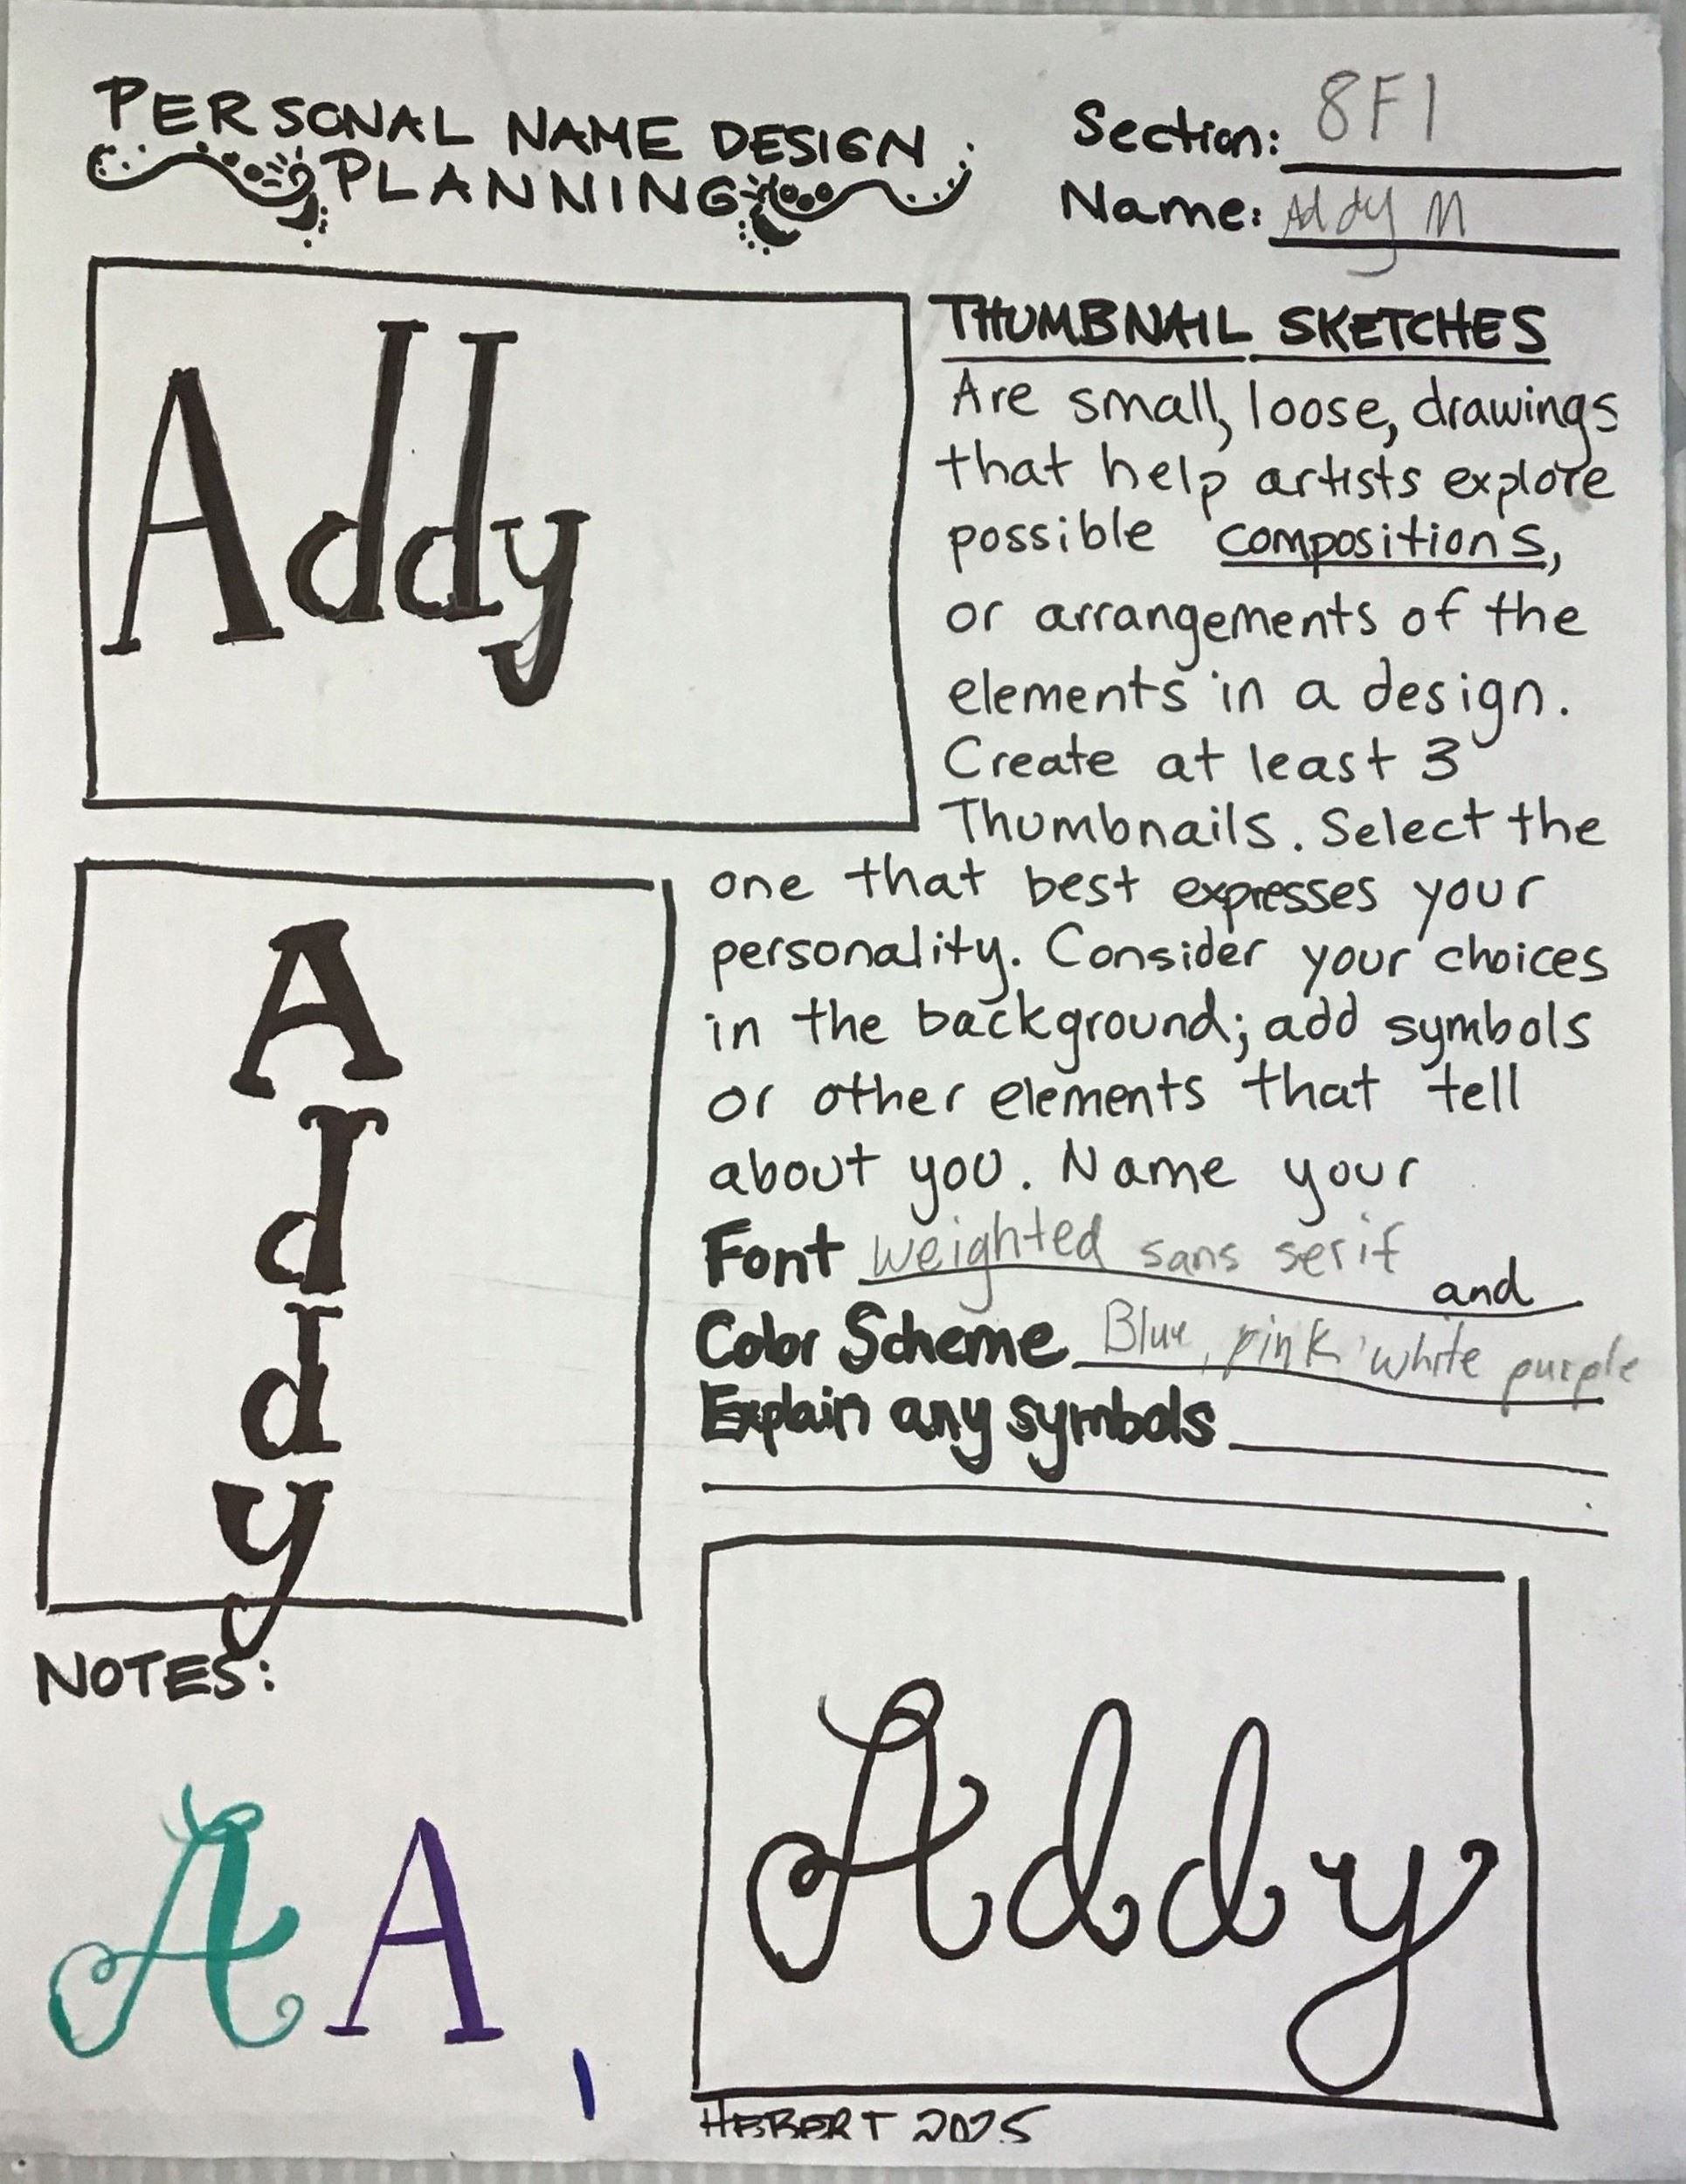 PERSONAL NAME DESIGN
PLANNING
Section: 8F1
Name: Addy M
Addy
THUMBNAIL SKETCHES
Are small, loose, drawings
that help artists explore
possible compositions,
or arrangements of the
elements in a design.
Create at least 3
Thumbnails. Select the
one that best expresses your
personality. Consider your choices
in the background; add symbols
or other elements that tell
about you. Name your
Font weighted sans serif and
Color Scheme Blue, pink, white purple
Explain any symbols
A
d
d
y
NOTES:
A A
Addy
HEBERT 2025